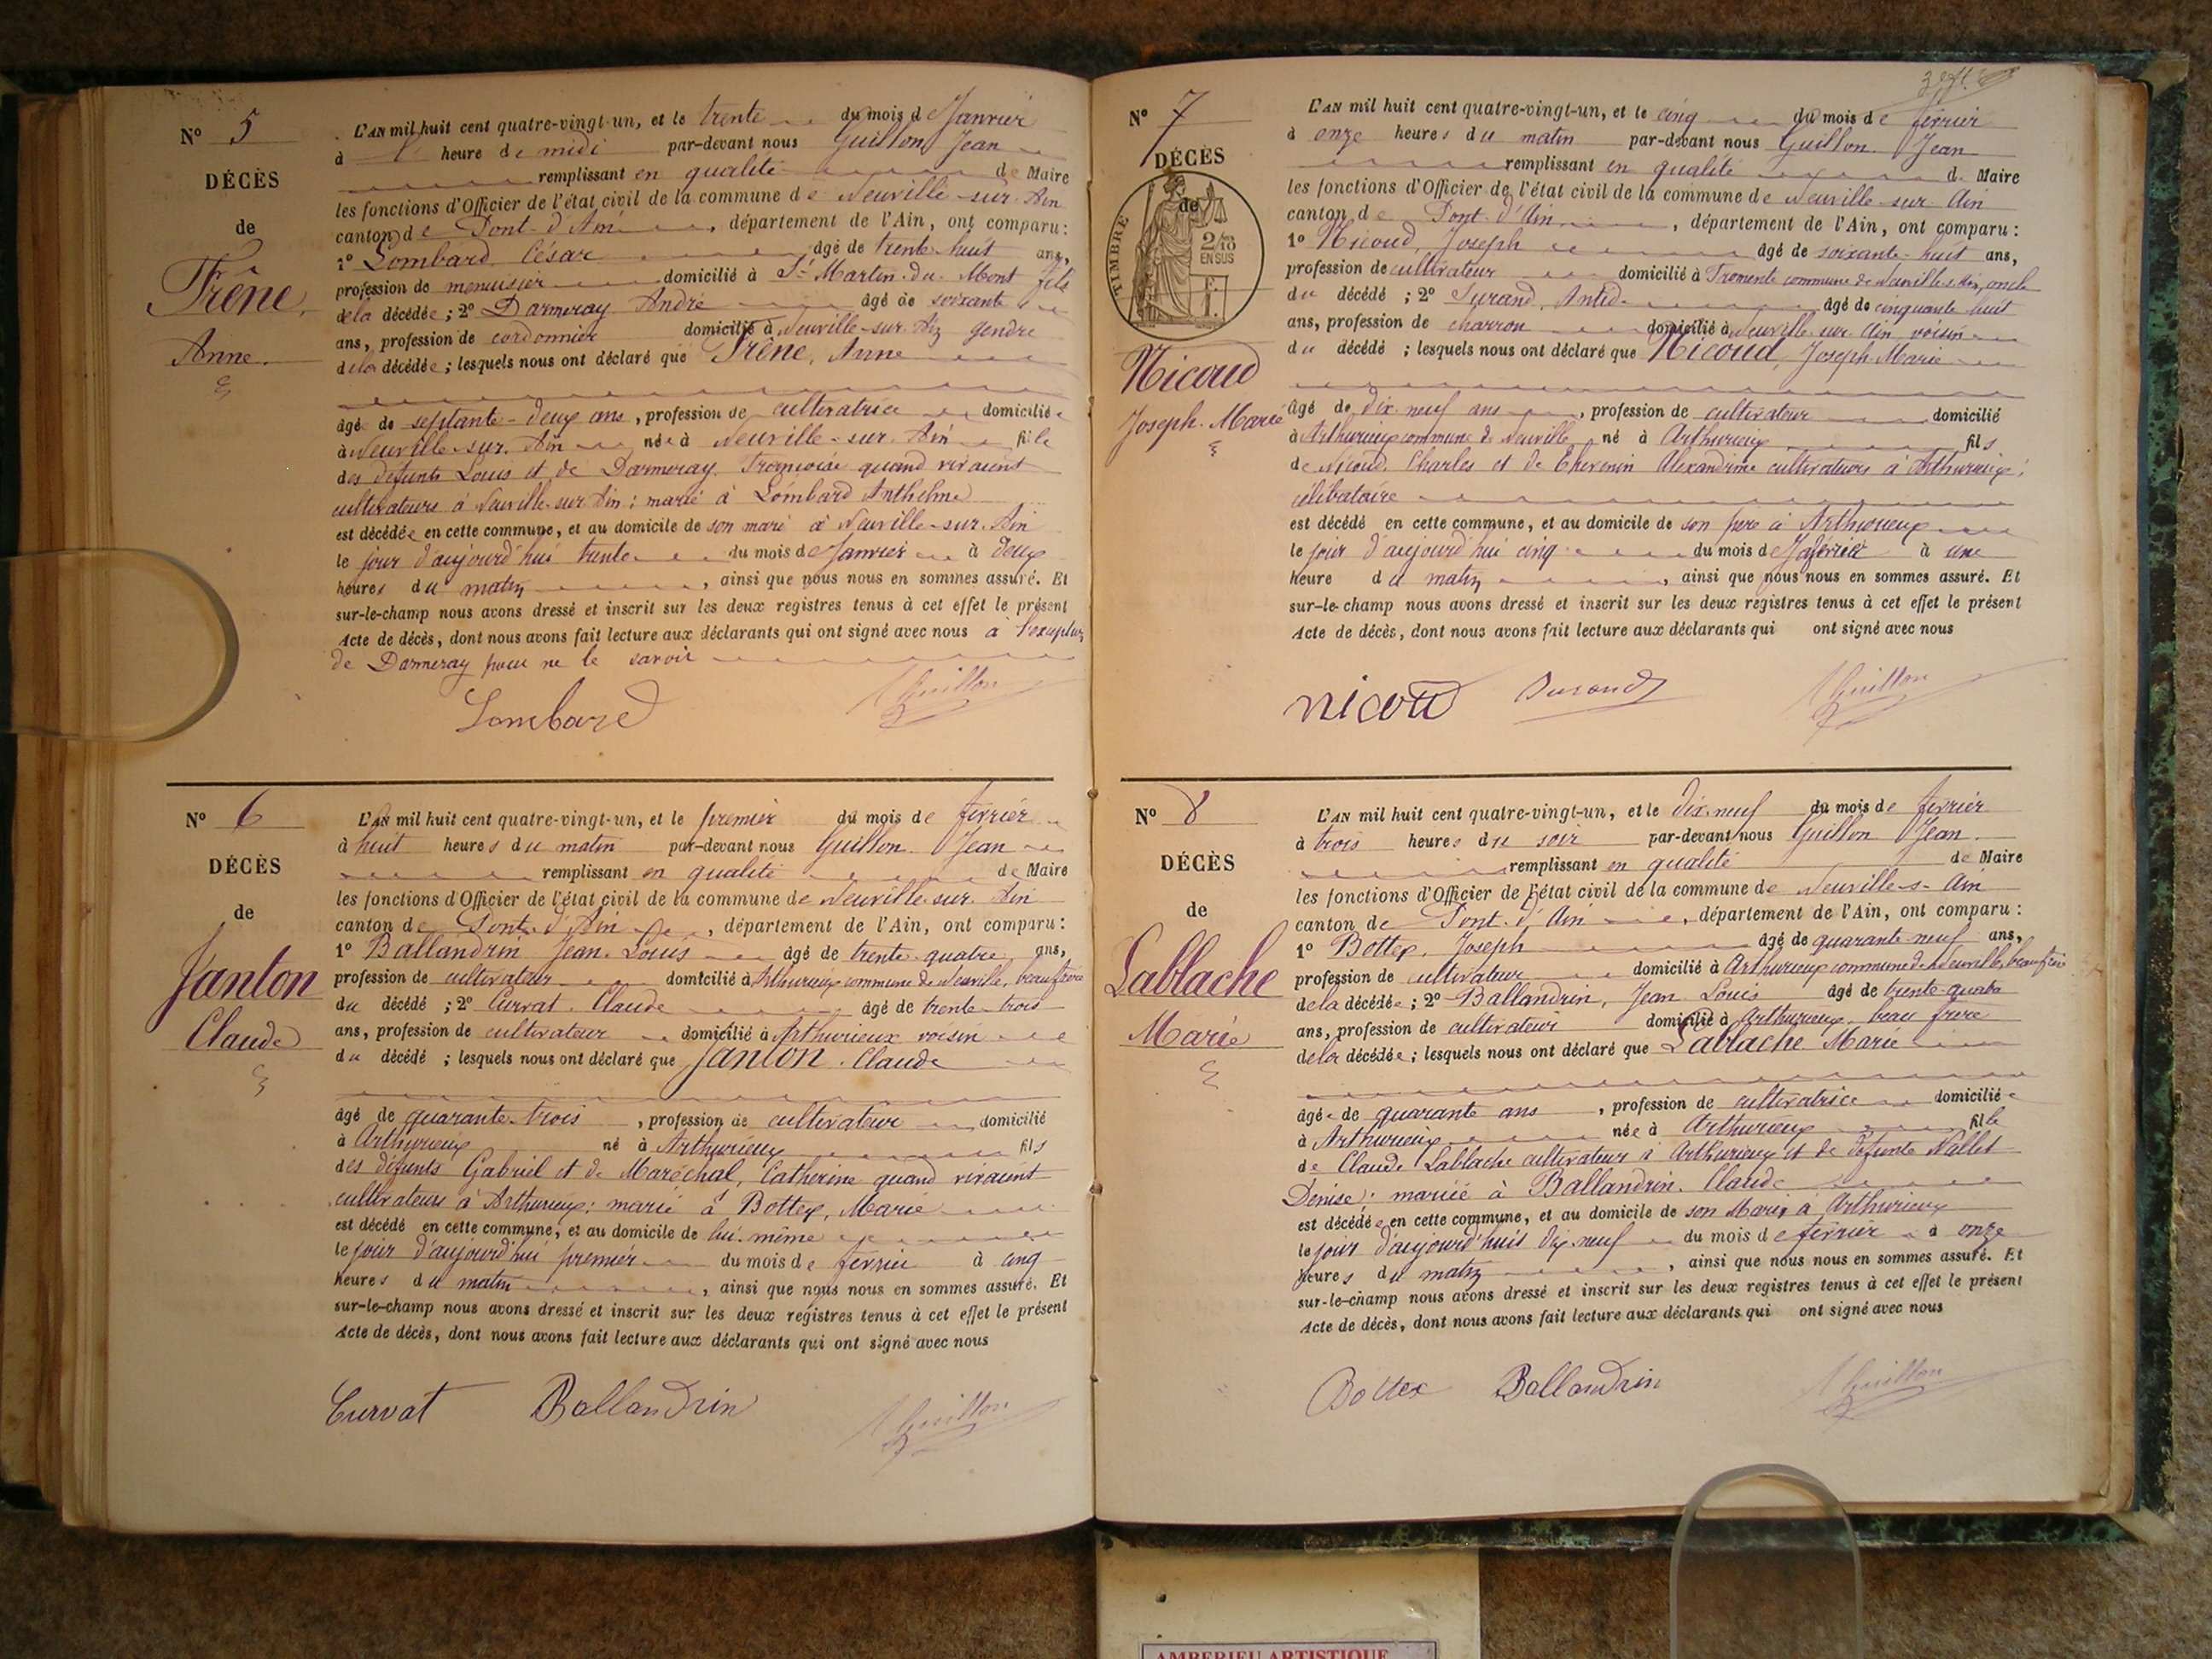 Nº 5
DÉCÈS
de
Frêne,
Anne.
L'AN mil huit cent quatre-vingt-un, et le trente du mois de Janvier
à heure de midi par-devant nous Guillon Jean
remplissant en qualité de Maire
les fonctions d'Officier de l'état civil de la commune de Neuville-sur-Ain
canton de Pont-d'Ain, département de l'Ain, ont comparu:
1º Lombard César âgé de trente-huit ans,
profession de menuisier domicilié à St Martin-du-Mont fils
de la décédée; 2º Darmeray André âgé de soixante
ans, profession de cordonnier domicilié à Neuville-sur-Ain gendre
de la décédée; lesquels nous ont déclaré que Frêne, Anne
âgé de septante-deux ans, profession de cultivatrice domiciliée
à Neuville-sur-Ain née à Neuville-sur-Ain fille
des défunts Louis et de Darmeray Françoise quand vivaient
cultivateurs à Neuville-sur-Ain; marié à Lombard Anthelme
est décédée en cette commune, et au domicile de son mari à Neuville-sur-Ain
le jour d'aujourd'hui trente du mois de Janvier à deux
heures du matin, ainsi que nous nous en sommes assuré. Et
sur-le-champ nous avons dressé et inscrit sur les deux registres tenus à cet effet le présent
Acte de décès, dont nous avons fait lecture aux déclarants qui ont signé avec nous à l'exception
de Darmeray pour ne le savoir
Lombard Guillon
Nº 6
DÉCÈS
de
Janton
Claude
L'AN mil huit cent quatre-vingt-un, et le premier du mois de février
à huit heures du matin par-devant nous Guillon Jean
remplissant en qualité de Maire
les fonctions d'Officier de l'état civil de la commune de Neuville-sur-Ain
canton de Pont-d'Ain, département de l'Ain, ont comparu:
1º Ballandrin Jean-Louis âgé de trente-quatre ans,
profession de cultivateur domicilié à Arthurieux commune de Neuville, beau frère
du décédé; 2º Curvat Claude âgé de trente-trois
ans, profession de cultivateur domicilié à Arthurieux voisin
du décédé; lesquels nous ont déclaré que Janton Claude
âgé de quarante-trois, profession de cultivateur domicilié
à Arthurieux né à Arthurieux fils
des défunts Gabriel et de Maréchal, Catherine quand vivaient
cultivateurs à Arthurieux; marié à Bottex, Marie
est décédé en cette commune, et au domicile de lui-même
le jour d'aujourd'hui premier du mois de février à cinq
heures du matin, ainsi que nous nous en sommes assuré. Et
sur-le-champ nous avons dressé et inscrit sur les deux registres tenus à cet effet le présent
Acte de décès, dont nous avons fait lecture aux déclarants qui ont signé avec nous
Curvat Ballandrin Guillon
Nº 7
DÉCÈS
de
TIMBRE
2/10
EN SUS
Nicoud
Joseph-Marie
L'AN mil huit cent quatre-vingt-un, et le cinq du mois de février
à onze heures du matin par-devant nous Guillon Jean
remplissant en qualité de Maire
les fonctions d'Officier de l'état civil de la commune de Neuville-sur-Ain
canton de Pont-d'Ain, département de l'Ain, ont comparu:
1º Nicoud, Joseph âgé de soixante-huit ans,
profession de cultivateur domicilié à Fromente commune de Neuville s Ain, oncle
du décédé; 2º Durand, Antid. âgé de cinquante huit
ans, profession de charron domicilié à Neuville-sur-Ain voisin
du décédé; lesquels nous ont déclaré que Nicoud, Joseph-Marie
âgé de dix neuf ans, profession de cultivateur domicilié
à Arthurieux commune de Neuville né à Arthurieux fils
de Nicoud, Charles et de Thevenin Alexandrine cultivateurs à Arthurieux;
célibataire
est décédé en cette commune, et au domicile de son père à Arthurieux
le jour d'aujourd'hui cinq du mois de février à une
heure du matin, ainsi que nous nous en sommes assuré. Et
sur-le-champ nous avons dressé et inscrit sur les deux registres tenus à cet effet le présent
Acte de décès, dont nous avons fait lecture aux déclarants qui ont signé avec nous
nicoud Durand Guillon
Nº 8
DÉCÈS
de
Lablache
Marie
L'AN mil huit cent quatre-vingt-un, et le dix-neuf du mois de février
à trois heures du soir par-devant nous Guillon Jean
remplissant en qualité de Maire
les fonctions d'Officier de l'état civil de la commune de Neuville-s-Ain
canton de Pont-d'Ain, département de l'Ain, ont comparu:
1º Bottex, Joseph âgé de quarante-neuf ans,
profession de cultivateur domicilié à Arthurieux commune de Neuville, beau frère
de la décédée; 2º Ballandrin, Jean Louis âgé de trente-quatre
ans, profession de cultivateur domicilié à Arthurieux, beau frère
de la décédée; lesquels nous ont déclaré que Lablache Marie
âgée de quarante ans, profession de cultivatrice domiciliée
à Arthurieux née à Arthurieux fille
de Claude Lablache cultivateur à Arthurieux et de défunte Nallet
Denise; mariée à Ballandrin Claude
est décédée en cette commune, et au domicile de son Mari à Arthurieux
le jour d'aujourd'hui dix neuf du mois de février à onze
heures du matin, ainsi que nous nous en sommes assuré. Et
sur-le-champ nous avons dressé et inscrit sur les deux registres tenus à cet effet le présent
Acte de décès, dont nous avons fait lecture aux déclarants qui ont signé avec nous
Bottex Ballandrin Guillon
AMBERIEU ARTISTIQUE